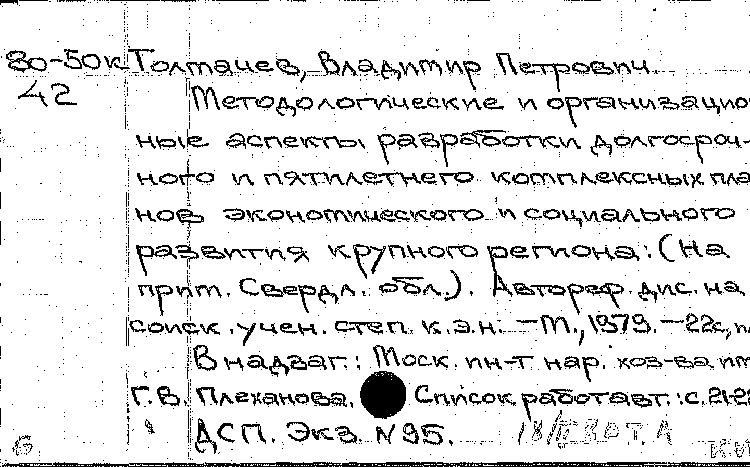 80-50к Толмачев, Владимир Петрович
42 Методологические и организацио
ные аспекты разработки долгосроч-
ного и пятилетнего комплексных пла
нов экономического и социального
развития крупного региона: (На
прим. Свердл. обл.). Автореф. дис. на
соиск. учен. степ. к.э.н. – М., 1979. – 22с,
В надзаг.: Моск. ин-т нар. хоз-ва им
Г.В. Плеханова. Список работ авт.: с. 21-22
ДСП. Экз. N 95.
б